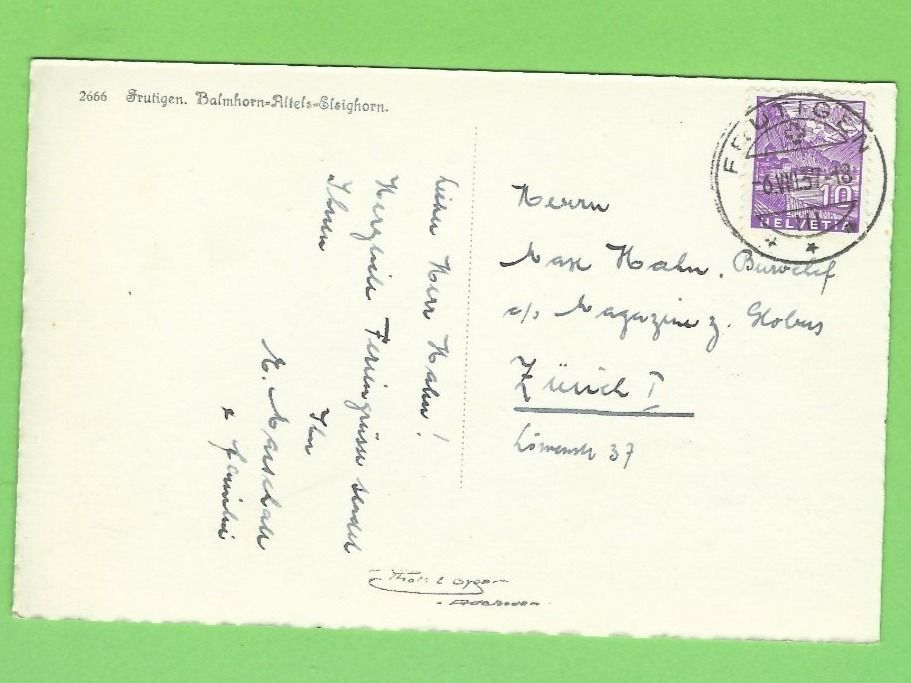 2666 Frutigen. Balmhorn=Altels=Elsighorn.
Lieber Herr Hahn!
Herzliche Feriengrüsse sendet
Ihnen
Ihr
E. Marschall
& Familie
FRUTIGEN
-6.VIII.37.-18
10
HELVETIA
Herrn
Max Hahn, Bürochef
c/o Magazine z. Globus
Zürich I
Löwenstr 37
Adelboden